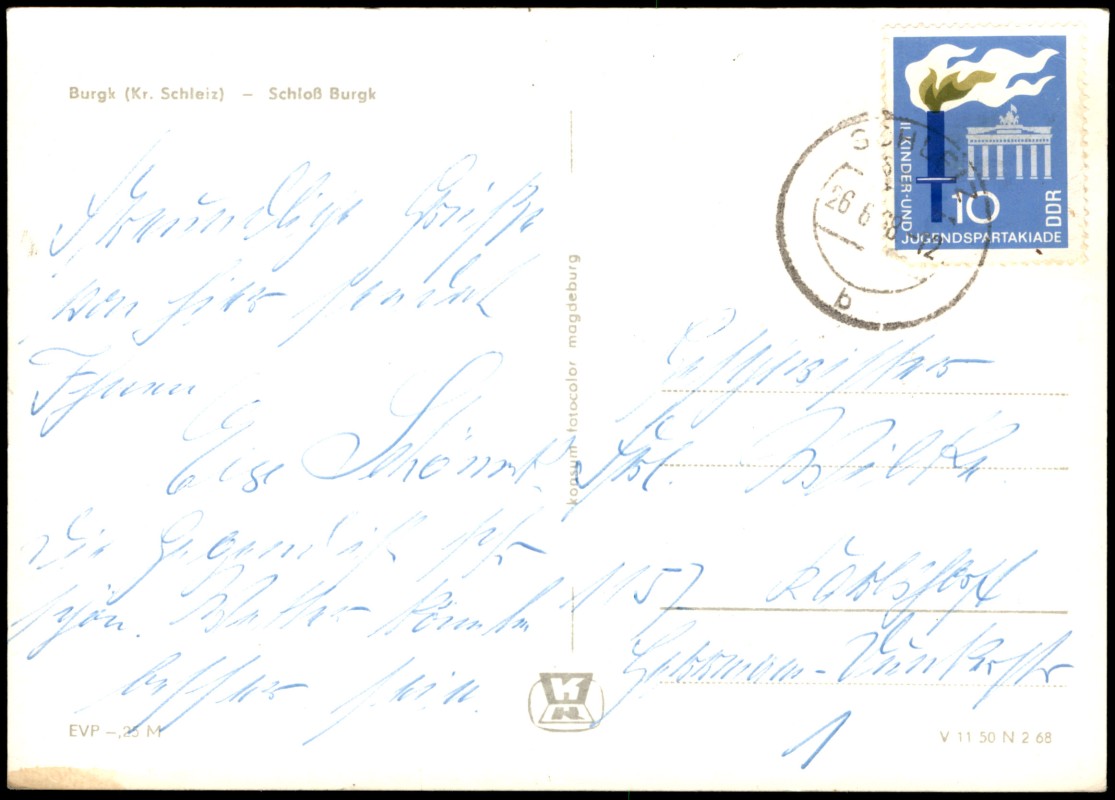 Burgk (Kr. Schleiz) — Schloß Burgk
Freundliche Grüße
von hier sendet
Ihnen
Else
Die Gegend ist sehr
schön. Wetter könnte
besser sein.
EVP –,25 M
konsum fotocolor magdeburg
II. KINDER-UND
JUGENDSPARTAKIADE
10
DDR
SCHLEIZ
26.6.68-12
b
Geschwister
Frl. Wilke
1157 Karlshorst
Hermann-Duncker-Str
1
V 11 50 N 2 68